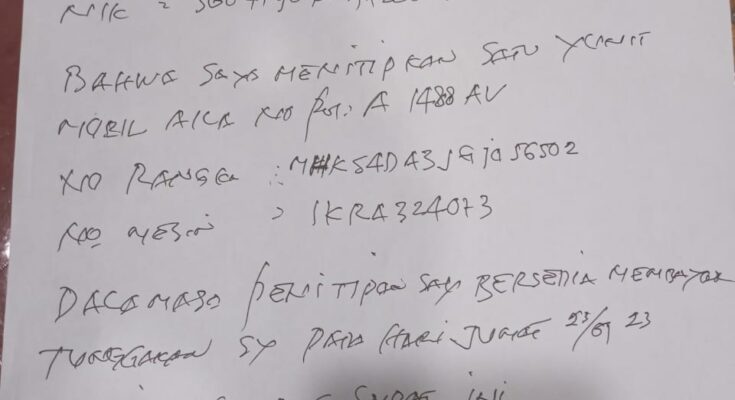 NIK :
BAHWA SAYA MENITIPKAN SATU YUNIT
MOBIL AILA NO POL: A 1488 AV
NO RANGKA : MHKS4DA3JGJ056502
NO MESIN : 1KRA324073
DALA MASO PENITIPAN SAY BERSEDIA MEMBAYAR
TUNGGAKAN SY PADA HARI JUMAT 23/09 23
INI